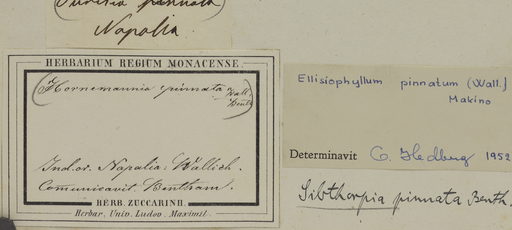 pinnata
Napalia
HERBARIUM REGIUM MONACENSE.
(Hornemannia pinnata Wall.
Benth.)
Ind. or. Napalia: Wallich.
Comunicavit Bentham.
HERB. ZUCCARINII.
Herbar. Univ. Ludov. Maximil.
Ellisiophyllum pinnatum (Wall.)
Makino
Determinavit O. Hedberg 1952
Sibthorpia pinnata Benth.